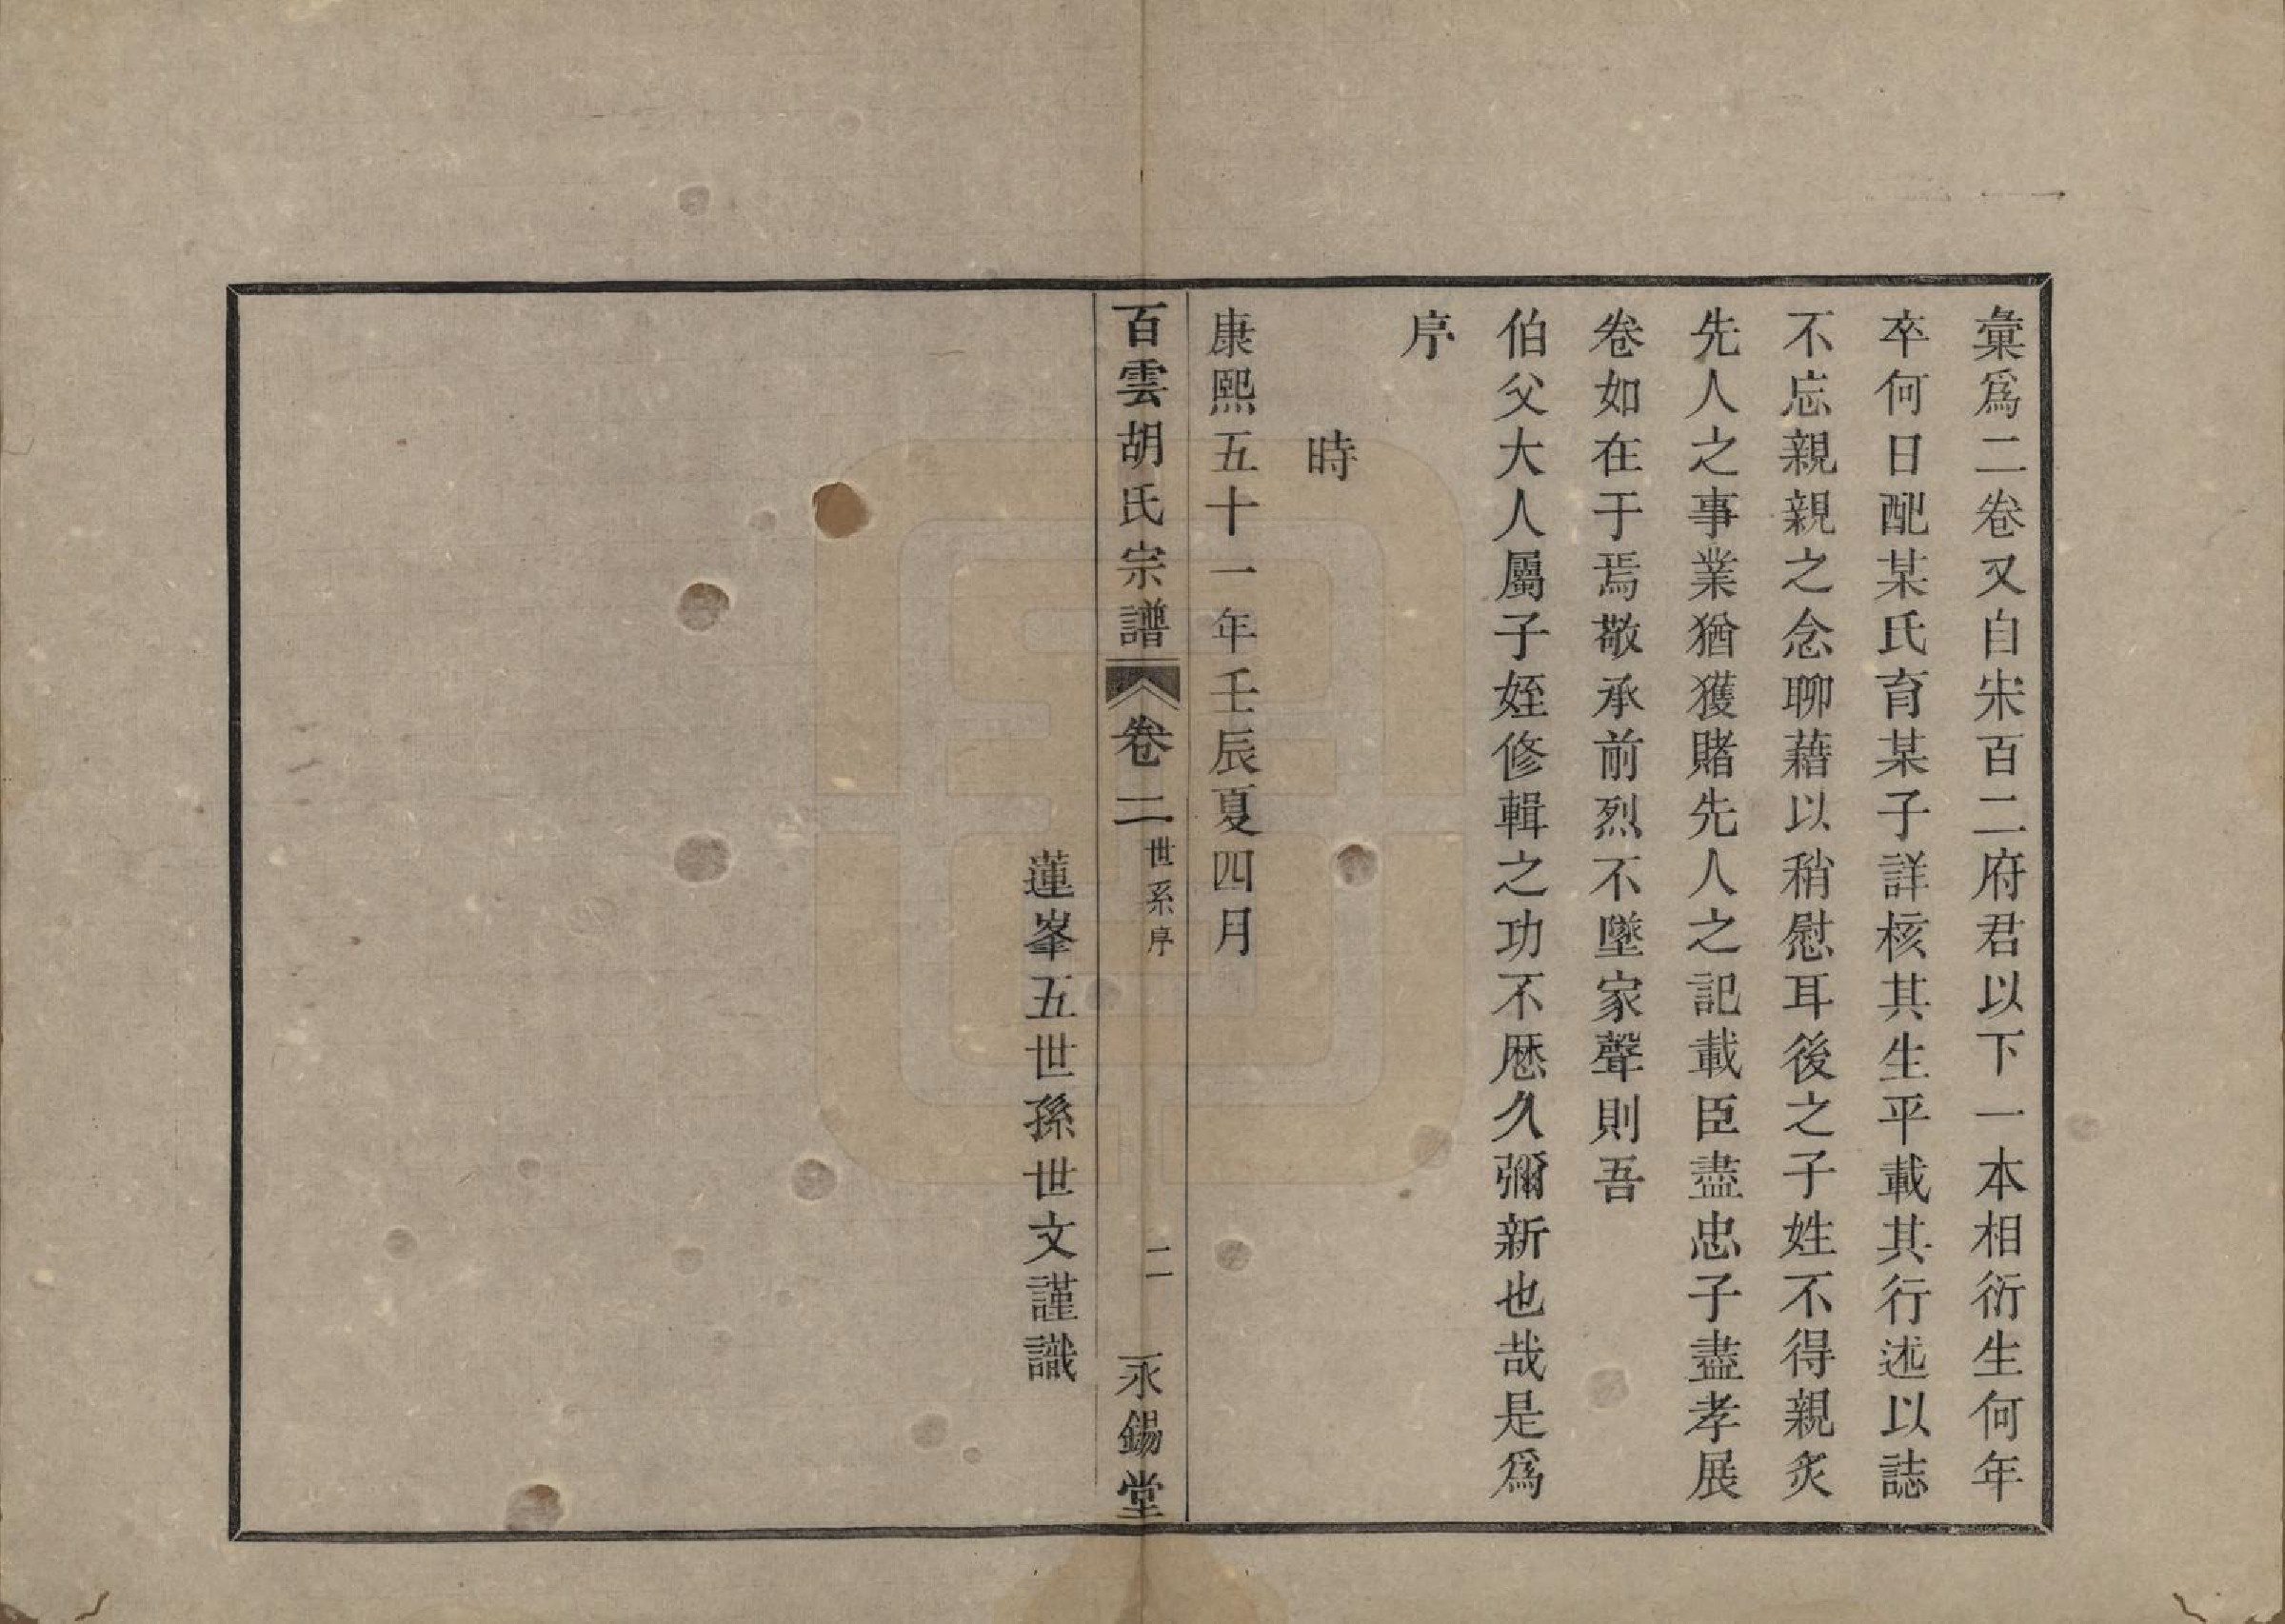 彙爲二卷又自宋百二府君以下一本相衍生何年
卒何日配某氏育某子詳核其生平載其行述以誌
不忘親親之念聊藉以稍慰耳後之子姓不得親炙
先人之事業猶獲賭先人之記載臣盡忠子盡孝展
卷如在于焉敬承前烈不墜家聲則吾
伯父大人屬子姪修輯之功不歷久彌新也哉是爲
序
時
康熙五十一年壬辰夏四月
百雲胡氏宗譜 卷二 世系序 二 永錫堂
蓮峯五世孫世文謹識